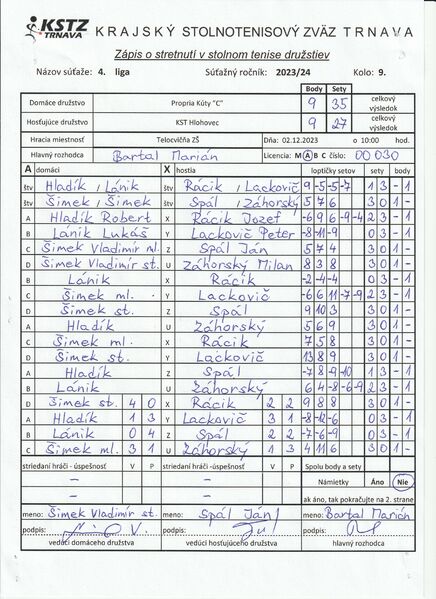 KSTZ TRNAVA KRAJSKÝ STOLNOTENISOVÝ ZVÄZ TRNAVA
Zápis o stretnutí v stolnom tenise družstiev
Názov súťaže: 4. liga Súťažný ročník: 2023/24 Kolo: 9.
Body Sety
Domáce družstvo Propria Kúty "C" 9 35 celkový výsledok
Hosťujúce družstvo KST Hlohovec 9 27 celkový výsledok
Hracia miestnosť Telocvičňa ZŠ Dňa: 02.12.2023 o 10:00 hod.
Hlavný rozhodca Bartal Marián Licencia: M A B C číslo: 00030
A domáci X hostia loptičky setov sety body
štv Hladík / Lánik štv Rácik / Lackovič 9 -5 -5 -7 1 3 - 1
štv Šimek / Šimek štv Spál / Záhorský 5 7 6 3 0 1 -
A Hladík Robert X Rácik Jozef -6 9 6 -9 -4 2 3 - 1
B Lánik Lukáš Y Lackovič Peter -8 -11 -9 0 3 - 1
C Šimek Vladimír ml. Z Spál Ján 5 7 4 3 0 1 -
D Šimek Vladimír st. U Záhorský Milan 8 3 8 3 0 1 -
B Lánik X Rácik -2 -4 -4 0 3 - 1
C Šimek ml. Y Lackovič -6 6 11 -7 -9 2 3 - 1
D Šimek st. Z Spál 9 10 3 3 0 1 -
A Hladík U Záhorský 5 6 9 3 0 1 -
C Šimek ml. X Rácik 7 5 8 3 0 1 -
D Šimek st. Y Lackovič 13 8 9 3 0 1 -
A Hladík Z Spál -7 8 -9 -10 1 3 - 1
B Lánik U Záhorský 6 4 -8 -6 -9 2 3 - 1
D Šimek st. 4 0 X Rácik 2 2 9 8 8 3 0 1 -
A Hladík 1 3 Y Lackovič 3 1 -8 -12 -6 0 3 - 1
B Lánik 0 4 Z Spál 2 2 -7 -6 -9 0 3 - 1
C Šimek ml. 3 1 U Záhorský 1 3 4 11 6 3 0 1 -
striedaní hráči - úspešnosť V P striedaní hráči - úspešnosť V P Spolu body a sety
- - Námietky Áno Nie
- - ak áno, tak pokračujte na 2. strane
meno: Šimek Vladimír st. meno: Spál Ján meno: Bartal Marián
podpis: podpis: podpis:
vedúci domáceho družstva vedúci hosťujúceho družstva hlavný rozhodca